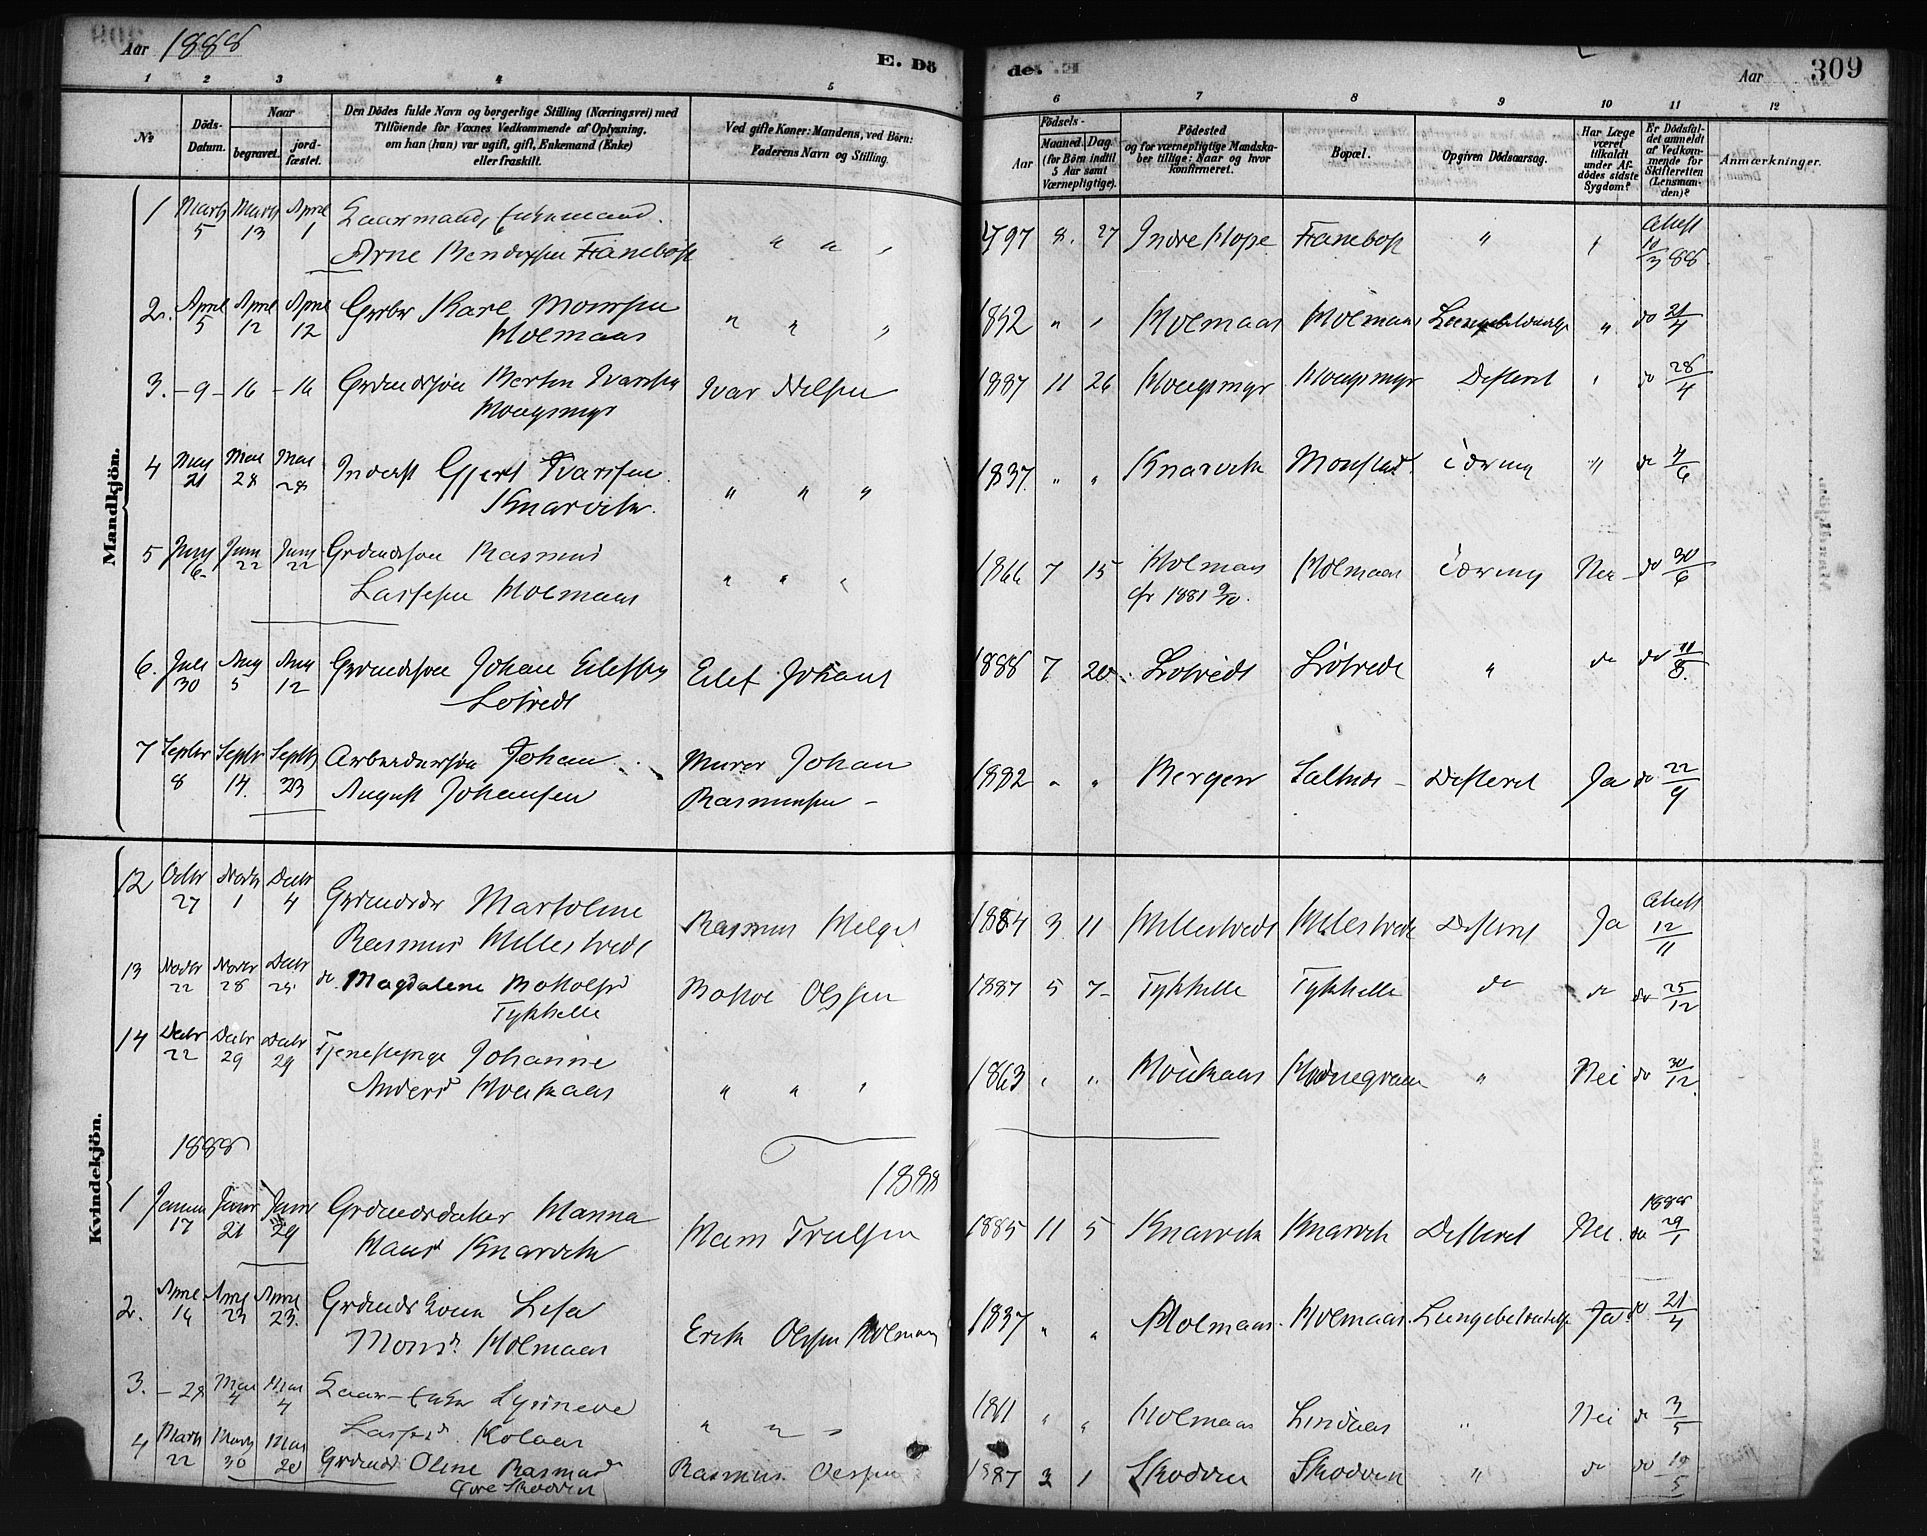 Aar 1888
E. Dö
de.
Aar
309
1 2 3 4 5 6 7 8 9 10 11 12
No
Döds-
Datum.
Naar
begravet.
jord-
fæstet.
Den Dödes fulde Navn og borgerlige Stilling (Næringsvei) med
Tilföiende for Voxnes Vedkommende af Oplysning,
om han (hun) var ugift, gift, Enkemand (Enke)
eller fraskilt.
Ved gifte Koner: Mandens, ved Börn:
Faderens Navn og Stilling.
Födsels-
Aar
Maaned. Dag.
(for Börn indtil
5 Aar samt
Værnepligtige).
Födested
og for værnepligtige Mandska-
ber tillige: Naar og hvor
konfirmeret.
Bopæl.
Opgiven Dödsaarsag.
Har Læge
været
tilkaldt
under Af-
dödes sidste
Sygdom?
Er Dödsfal-
det anmeldt
af Vedkom-
mende for
Skifteretten
(Lensman-
den)?
Anmærkninger.
Mandkjön.
1 Marts 5 Marts 13 April 1 Kaarmand, Enkemand
Arne Bendixsen Fanebost " " " 1797 8. 27 Indre Hope Fanebost " " Attest 10/3 88
2. April 5 April 12 April 12 Grbr Karl Monssen
Holmaas " " " 1852 " " Holmaas Holmaas " do 21/4
3. - 9 - 16 - 16 Grdmdssøn Berten Ivarsen
Ivar Nilsen 1887 11 26 Difterit " do 28/4
4 Mai 21 Mai 28 Mai 28 Inderst Gjert Ivarssen
Knarvik " " " 1837 " " Knarvik Monstad Tæring " do 4/6
5 Juny 6 Juny 22 Juny 22 Grdmdssøn Rasmus
Lassesen Holmaas " " " 1866 7 15 Holmaas Holmaas Tæring Nei do 30/6
cfr 1881 9/10.
6. Juli 30 Aug 5 Aug 12 Grdmdssøn Johan Eilefsen
Løtvedt Eilef Johans 1888 7 20 Løtvedt Løtvedt " do do 11/8.
7 Septbr 8 Septbr 14. Septbr 23 Arbeidersøn Johan
August Johansen Murer Johan
Rasmussen 1882 " " Bergen Salhus Difterit Ja do 22/9
Kvindekjön.
12 Octbr 27 Novbr 1 Decbr 4 Grdmdsdr Marsoline
Rasmusd Hillestvedt Rasmus Helges 1884 3 11 Hillestvedt Hillestvedt Difterit Ja Attest 12/11
13 Novbr 22 Novbr 28 Decbr do Magdalene Botholfsd
Tykhelle Bottol Olssen 1887 5 7 Tykhelle Tykhelle do do do 25/12
14 Decbr 22 Decbr 29 Decbr 29 Tjenestepige Johanne
Andersd " " " 1863 " " " Nei do 30/12
1888
1888
1 Januar 17 Januar 21 Januar 29 Grdmandsdatter Hanna
Hansd Knarvik Hans Trulsen 1885 11 5 Knarvik Knarvik Difterit Nei. 1888 do 29/1
2. April 14 April 23 April 23. Grdmds kone Lisa
Monsd. Holmaas Erik Olssen Holmaas 1837 " " Holmaas Holmaas Lungebetændelse Ja do 21/4
3. - 28 Mai 4 Mai 4 Kaar-Enke Synneve
Lassesd. Kolaas " " " 1811 " " Holmaas Lindaas " Nei do 3/5
4 Marts 22 Marts 30 Mai 20 Grdmdsd Oline Rasmusd
Øvre Skodven Rasmus Olssen 1887 3 1 Skodven Skodven " do do 19/5